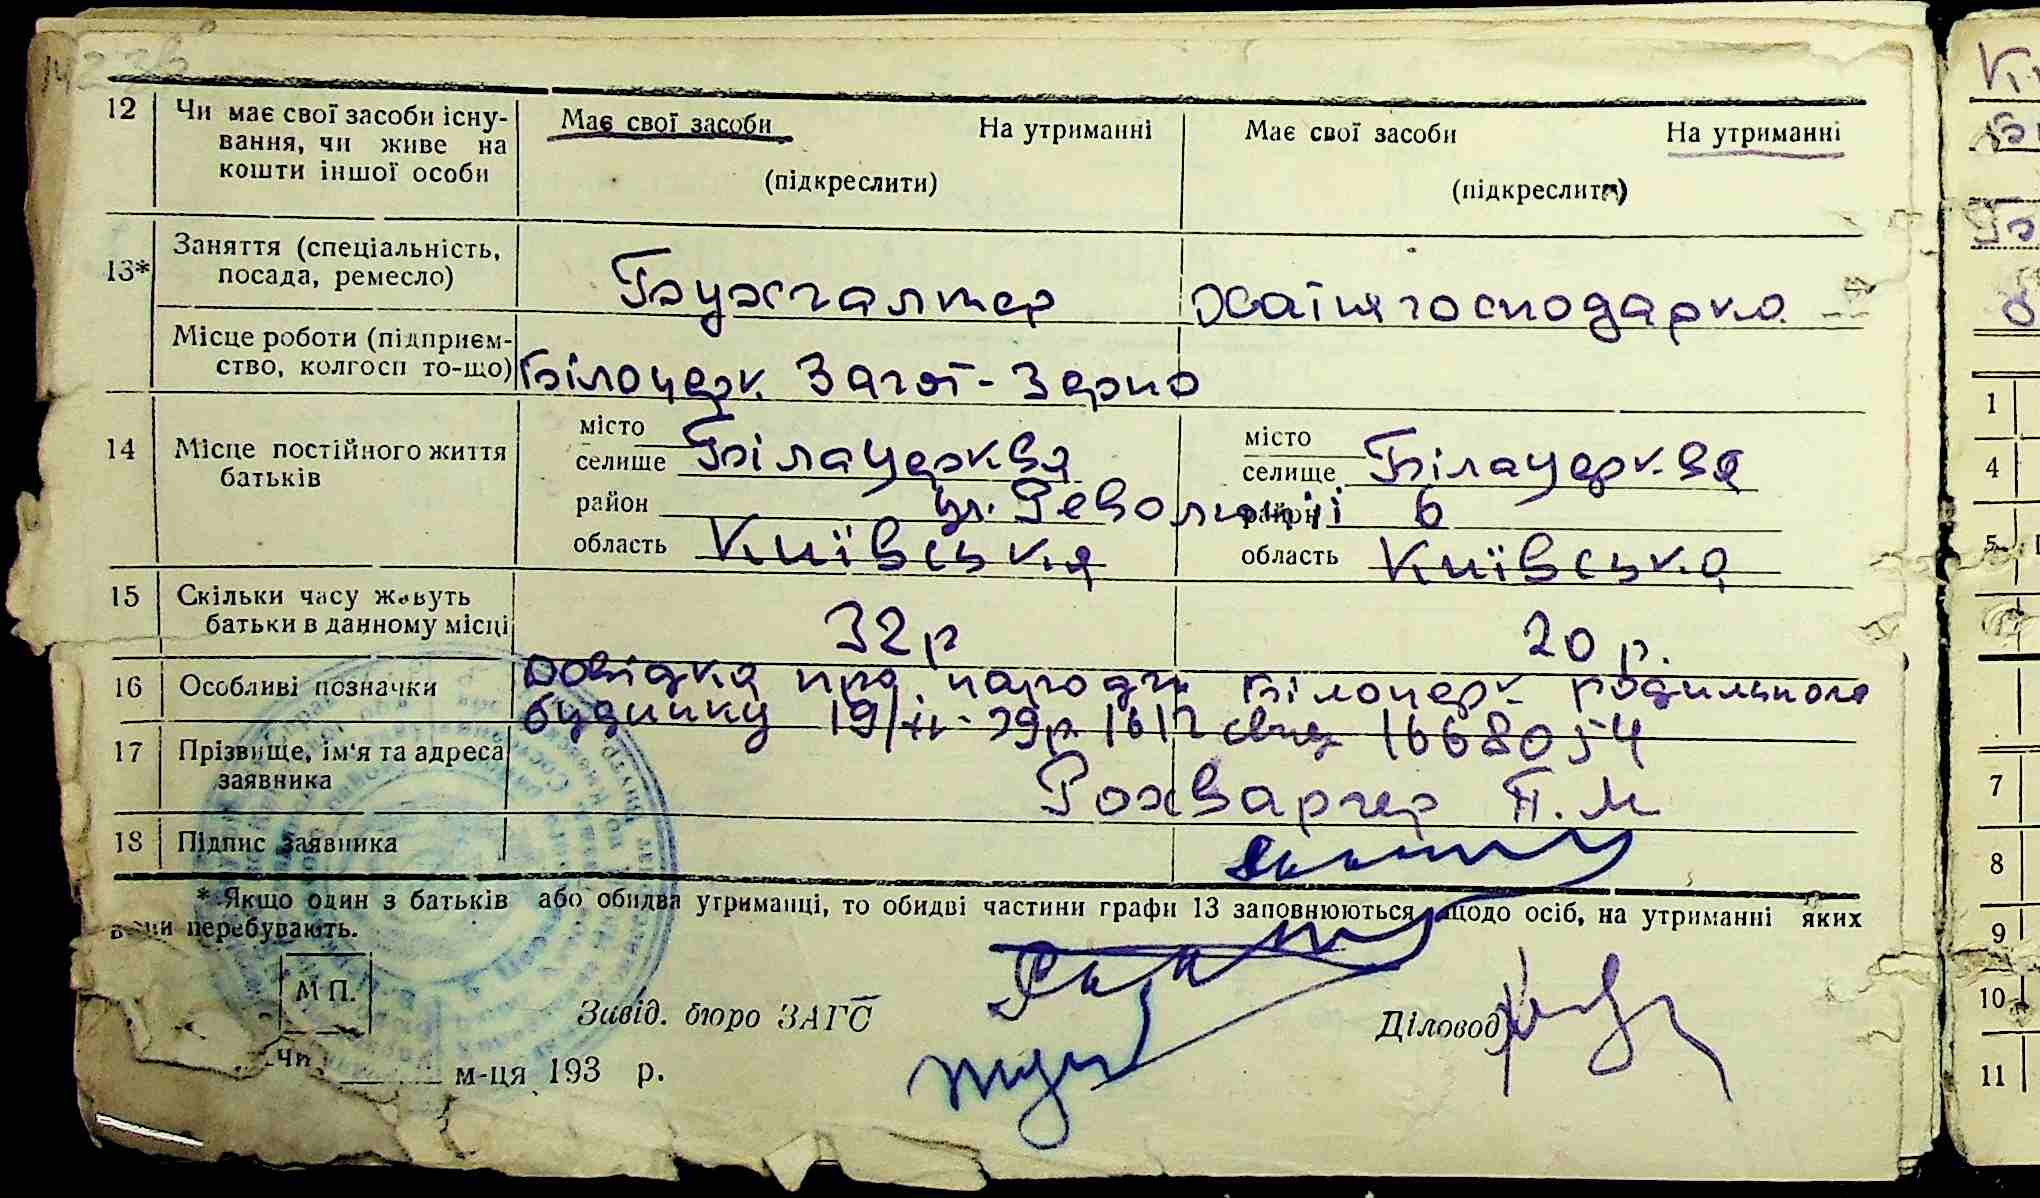 12 Чи має свої засоби існу- Має свої засоби На утриманні Має свої засоби На утриманні
вання, чи живе на
кошти іншої особи (підкреслити) (підкреслити)
13* Заняття (спеціальність,
посада, ремесло) Бухгалтер Хатня господарка
Місце роботи (підприєм-
ство, колгосп то-що) Білоцерк. Загот-Зерно
14 Місце постійного життя місто місто
батьків селище Білацерква селище Білацерква
район вул. Революції район 6
область Київська область Київська
15 Скільки часу живуть
батьки в данному місці 32 р 20 р.
16 Особливі позначки Довідка про народж Білоцерк родильного
будинку 19/ІІ-39р 1612 свид 1668054
17 Прізвище, ім'я та адреса
заявника Рохваргер П. М
18 Підпис заявника
* Якщо один з батьків або обидва утриманці, то обидві частини графи 13 заповнюються щодо осіб, на утриманні яких
вони перебувають.
М П.
Завід. бюро ЗАГС Діловод
м-ця 193 р.
1
4
5
7
8
9
10
11